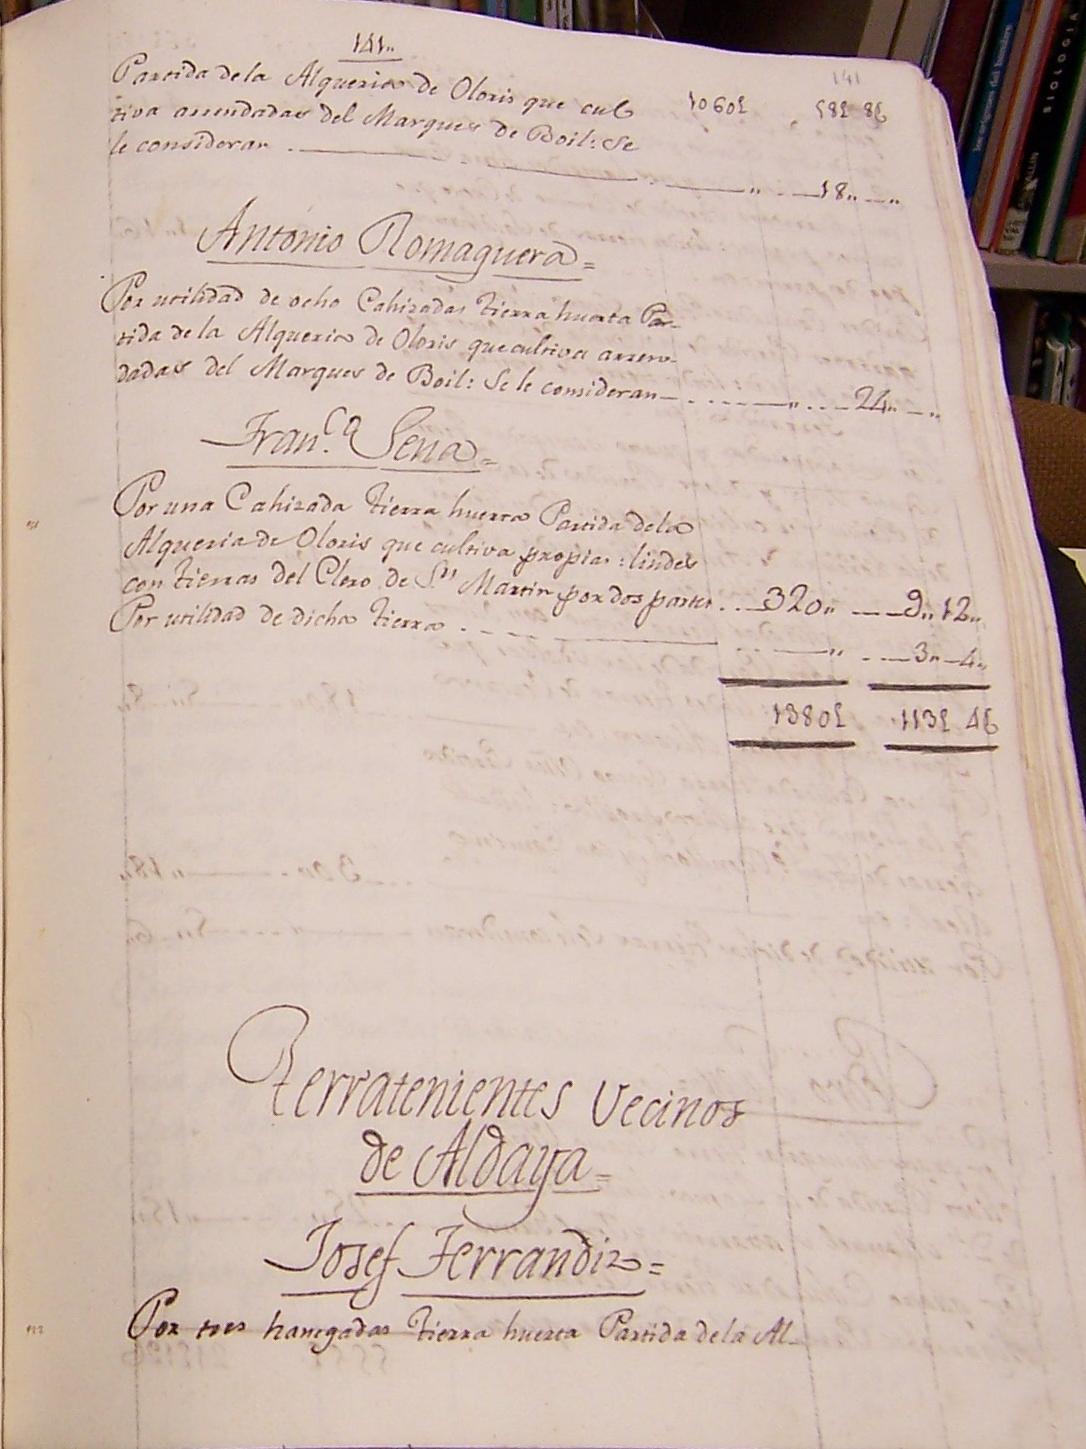 141„
141
Partida de la Alqueria de Oloris que cul 1060£ 58£ 8ß
tiva arrendadas del Marques de Boil: Se
le consideran „ 18„ „
Antonio Romaguera=
Por utilidad de ocho Cahizadas tierra huerta Par-
tida de la Alqueria de Oloris que cultiva arren-
dadas del Marques de Boil: Se le consideran „ 24„ „
Fran.ca Sena=
Por una Cahizada tierra huerta Partida de la
Alqueria de Oloris que cultiva propia: lindes
con tierras del Clero de Sn Martin por dos partes 320„ 9„ 12„
Por utilidad de dicha tierra „ 3„ 4„
1380£ 113£ 4ß
Terratenientes Vecinos
de Aldaya=
Josef Ferrandiz=
Por tres hanegadas tierra huerta Partida de la Al-
BIOLOGIA